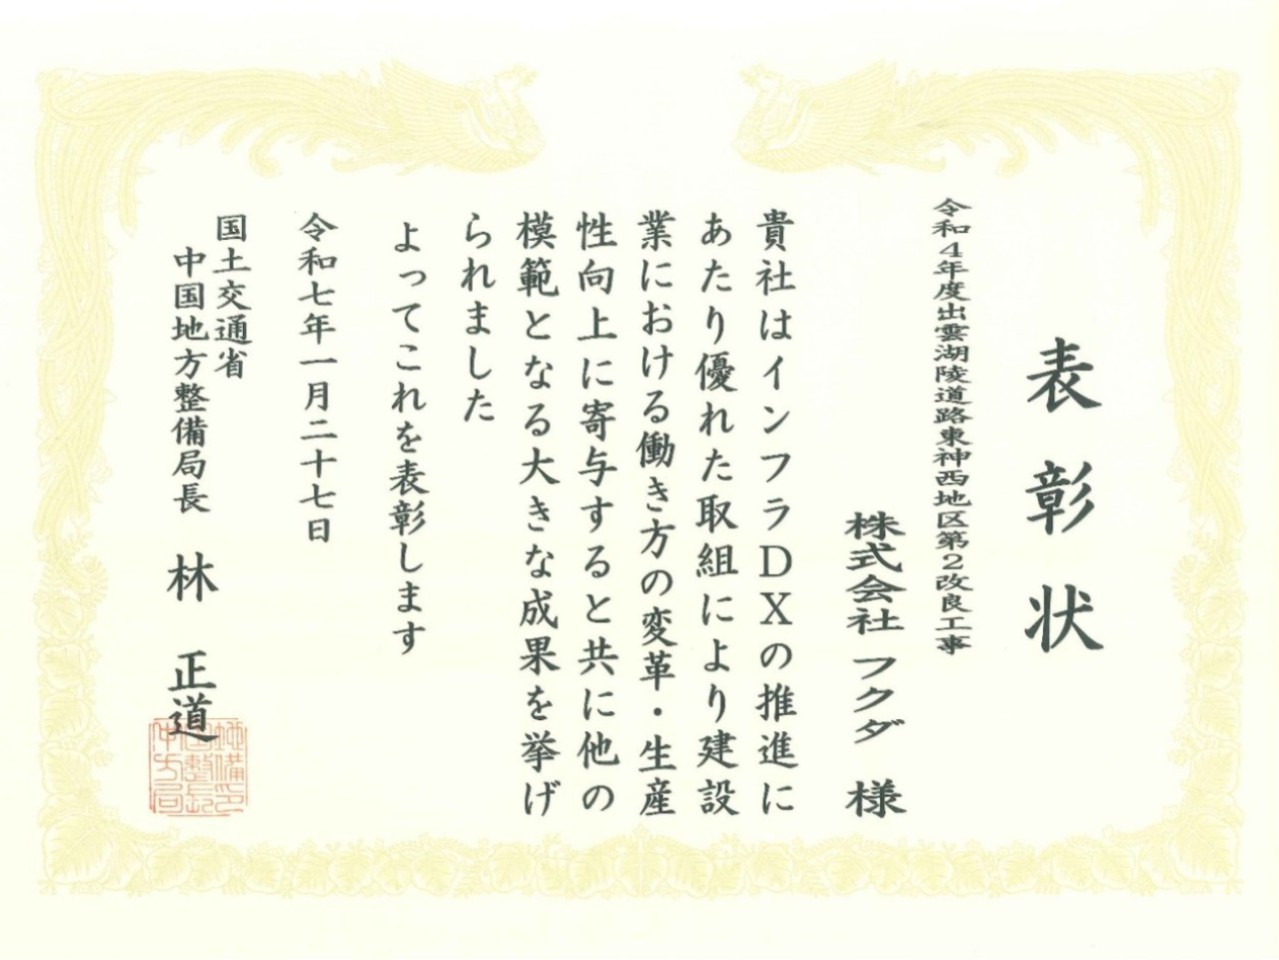 表彰状
令和4年度出雲湖陵道路東神西地区第2改良工事
株式会社 フクダ 様
貴社はインフラDXの推進に
あたり優れた取組により建設
業における働き方の変革・生産
性向上に寄与すると共に他の
模範となる大きな成果を挙げ
られました
よってこれを表彰します
令和七年一月二十七日
国土交通省
中国地方整備局長 林 正道